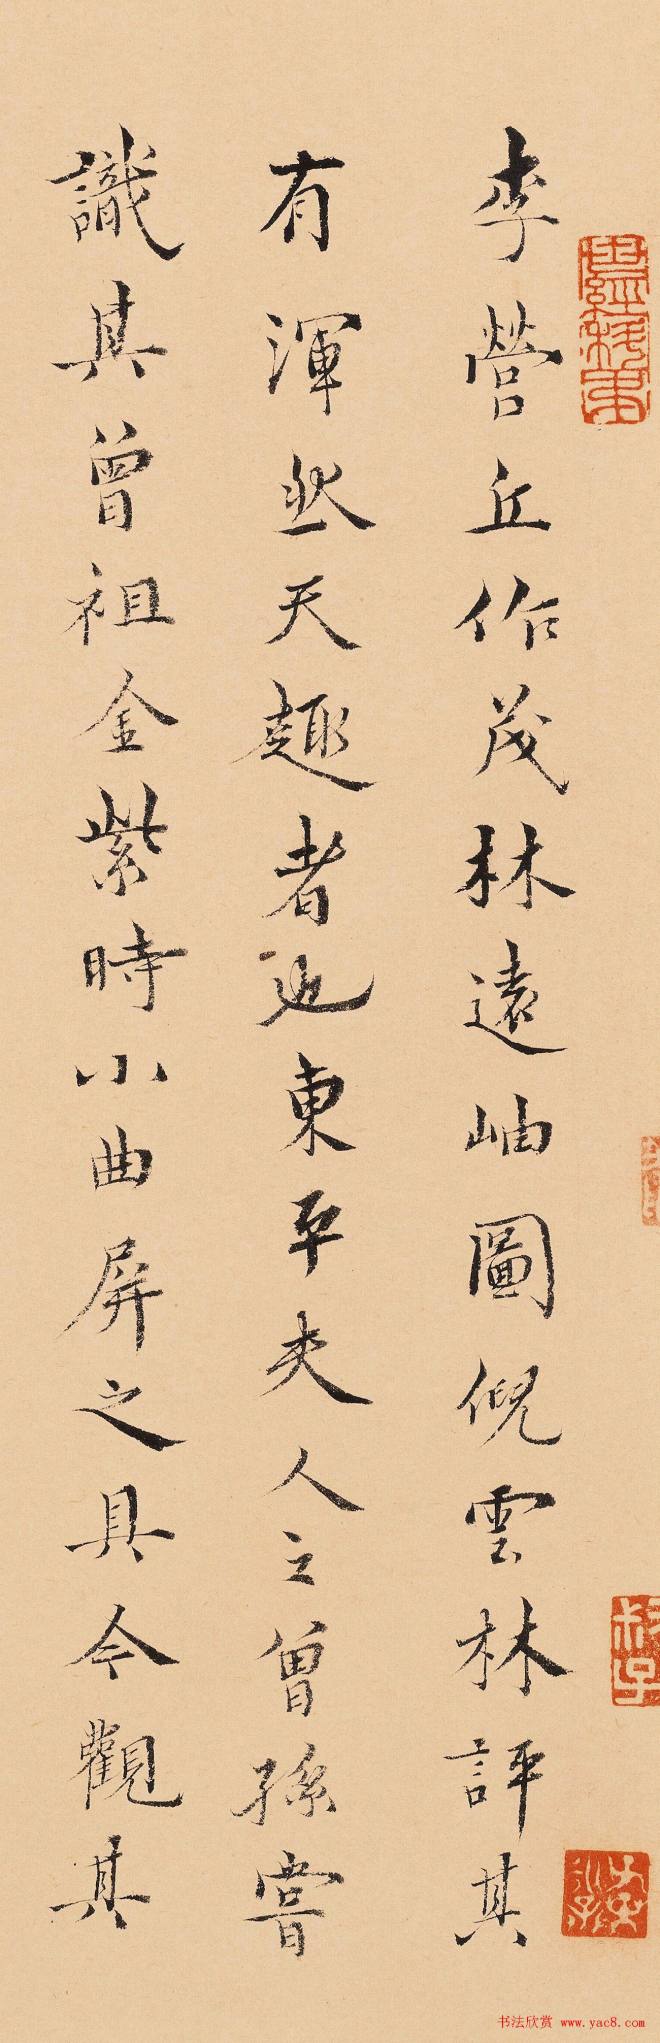 李營丘作茂林遠岫圖倪雲林評其
有渾然天趣者也東平夫人之曾孫嘗
識其曾祖金紫時小曲屏之具今觀其
书法欣赏 www.yac8.com